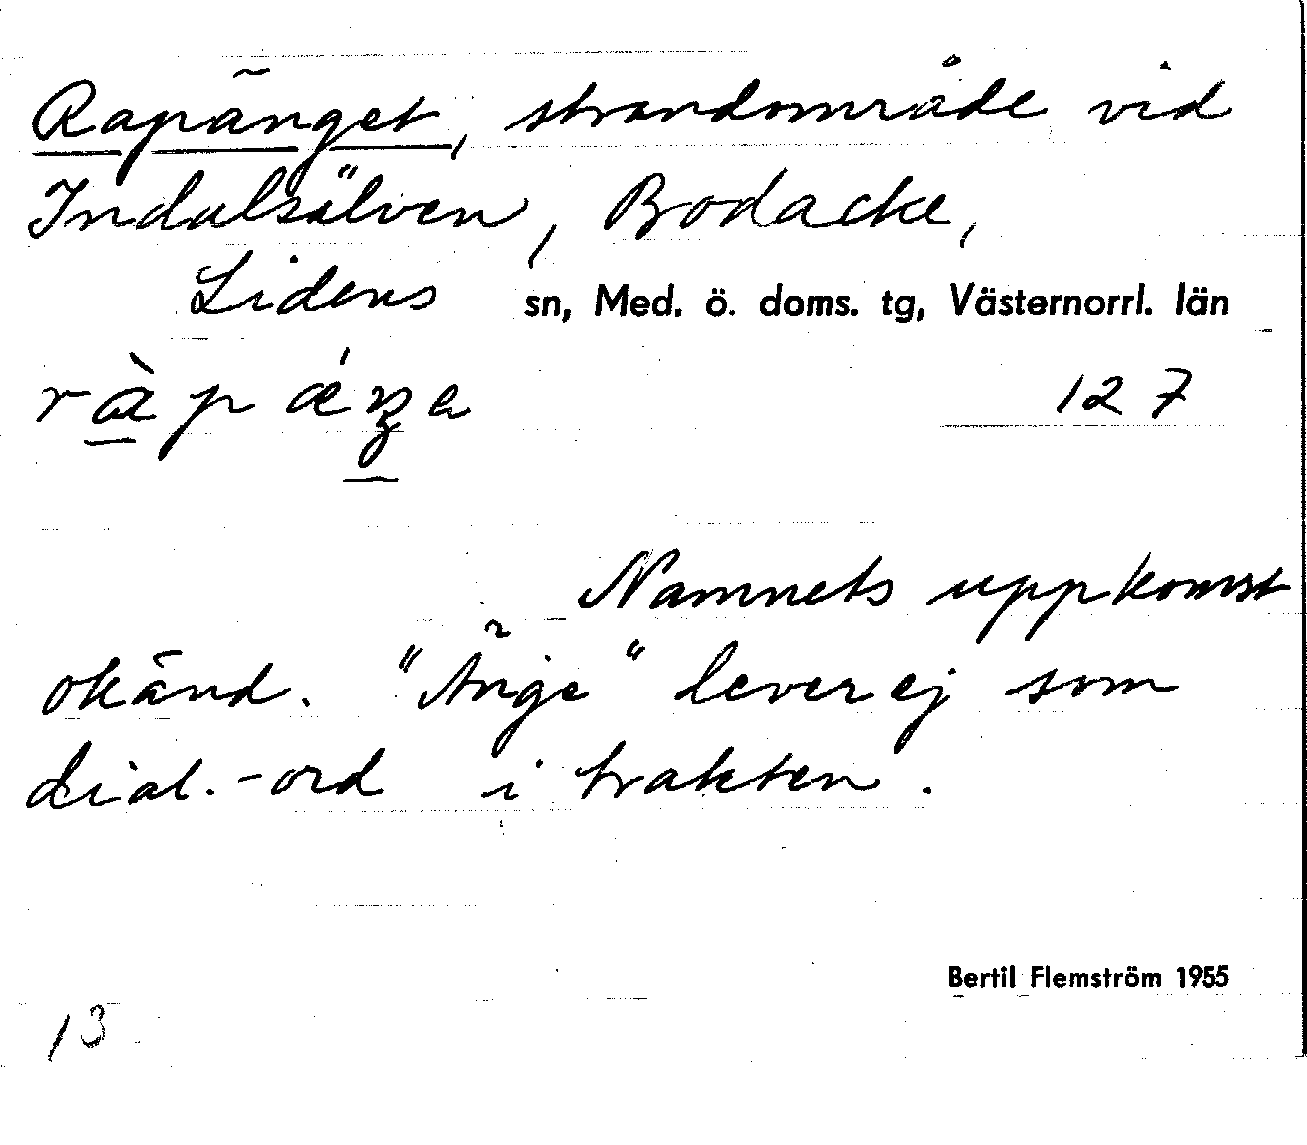 Rapänget, strandområde vid
Indalsälven, Bodacke,
Lidens sn, Med. ö. doms. tg, Västernorrl. län
127
Namnets uppkomst
okänd. "Änge" lever ej som
dial.-ord i trakten.
Bertil Flemström 1955
13